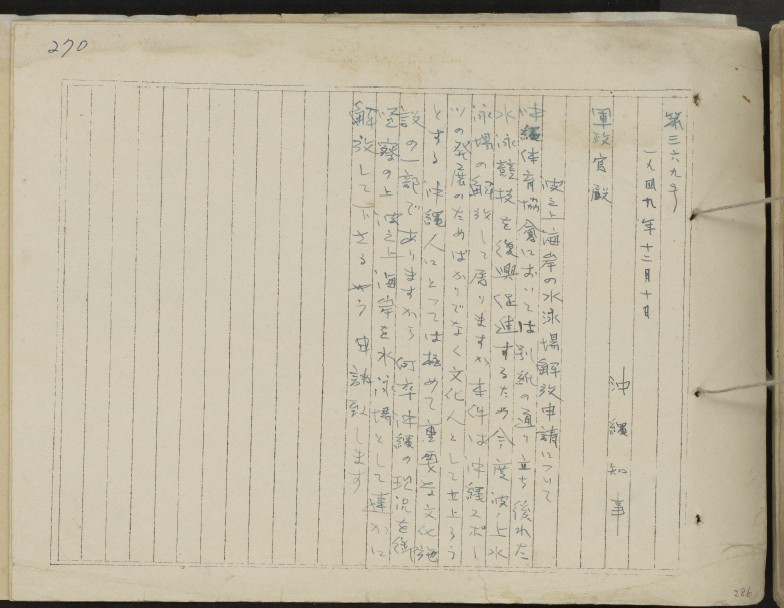 270
第三六九号
一九四九年十二月十日
沖縄知事
軍政官殿
波之上海岸の水泳場解放申請について
沖縄体育協会においては別紙の通り立ち後れた
水泳競技を復興促進するため今度波ノ上水
泳場の解放して居りますが本件は沖縄スポー
ツの発展のためばかりでなく文化人として立上ろう
とする沖縄人にとつては極めて重要な文化施
設の一部でありますから何卒沖縄の現況を御
洞察の上波之上海岸を水泳場として速かに
解放して下さるやう申請致します
286